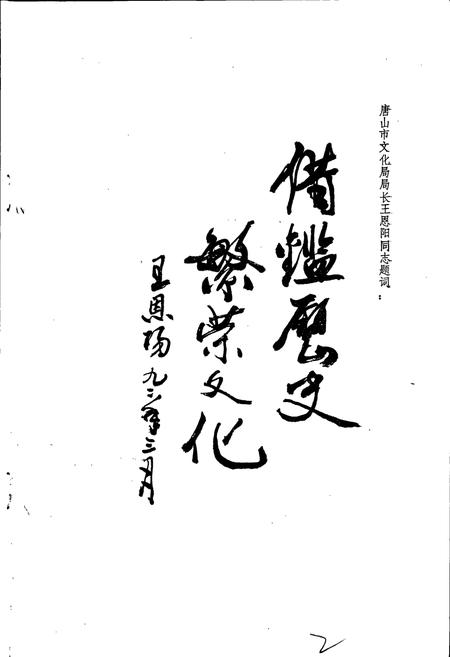 唐山市文化局局长王恩阳同志题词：
借鑑历史
繁荣文化
王恩阳 九二年三月
2